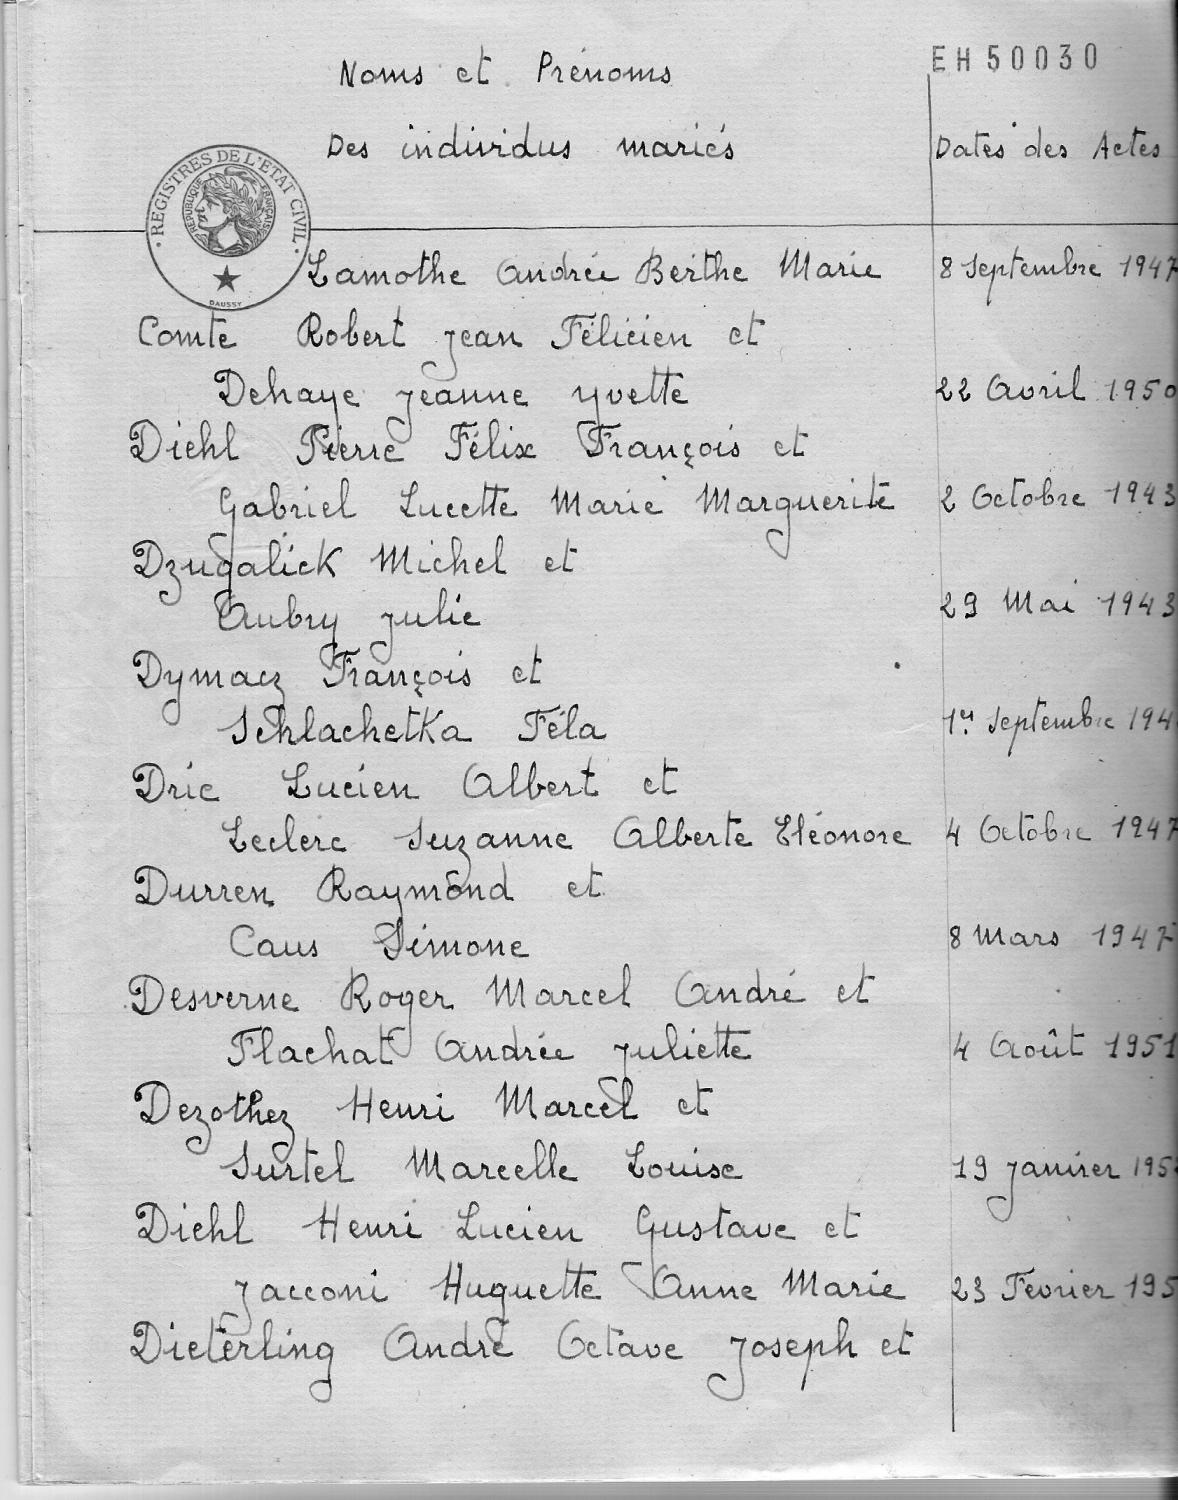 EH50030
Noms et Prénoms
Des individus mariés Dates des Actes
REGISTRES DE L'ETAT CIVIL
REPUBLIQUE FRANÇAISE
DAUSSY
Lamothe Andrée Berthe Marie 8 Septembre 1947
Comte Robert Jean Félicien et
Dehaye Jeanne Yvette 22 Avril 1950
Diehl Pierre Félix François et
Gabriel Lucette Marie Marguerite 2 Octobre 1943
Dzugalick Michel et
Aubry Julie 29 Mai 1943
Dymacz François et
Schlachetka Féla 1er Septembre 194
Dric Lucien Albert et
Leclerc Suzanne Alberte Eléonore 4 Octobre 1947
Durren Raymond et
Caus Simone 8 Mars 1947
Desverne Roger Marcel André et
Flachat Andrée Juliette 4 Août 1951
Dezothez Henri Marcel et
Surtel Marcelle Louise 19 Janvier 195
Diehl Henri Lucien Gustave et
Jacconi Huguette Anne Marie 23 Février 195
Dieterling André Octave Joseph et